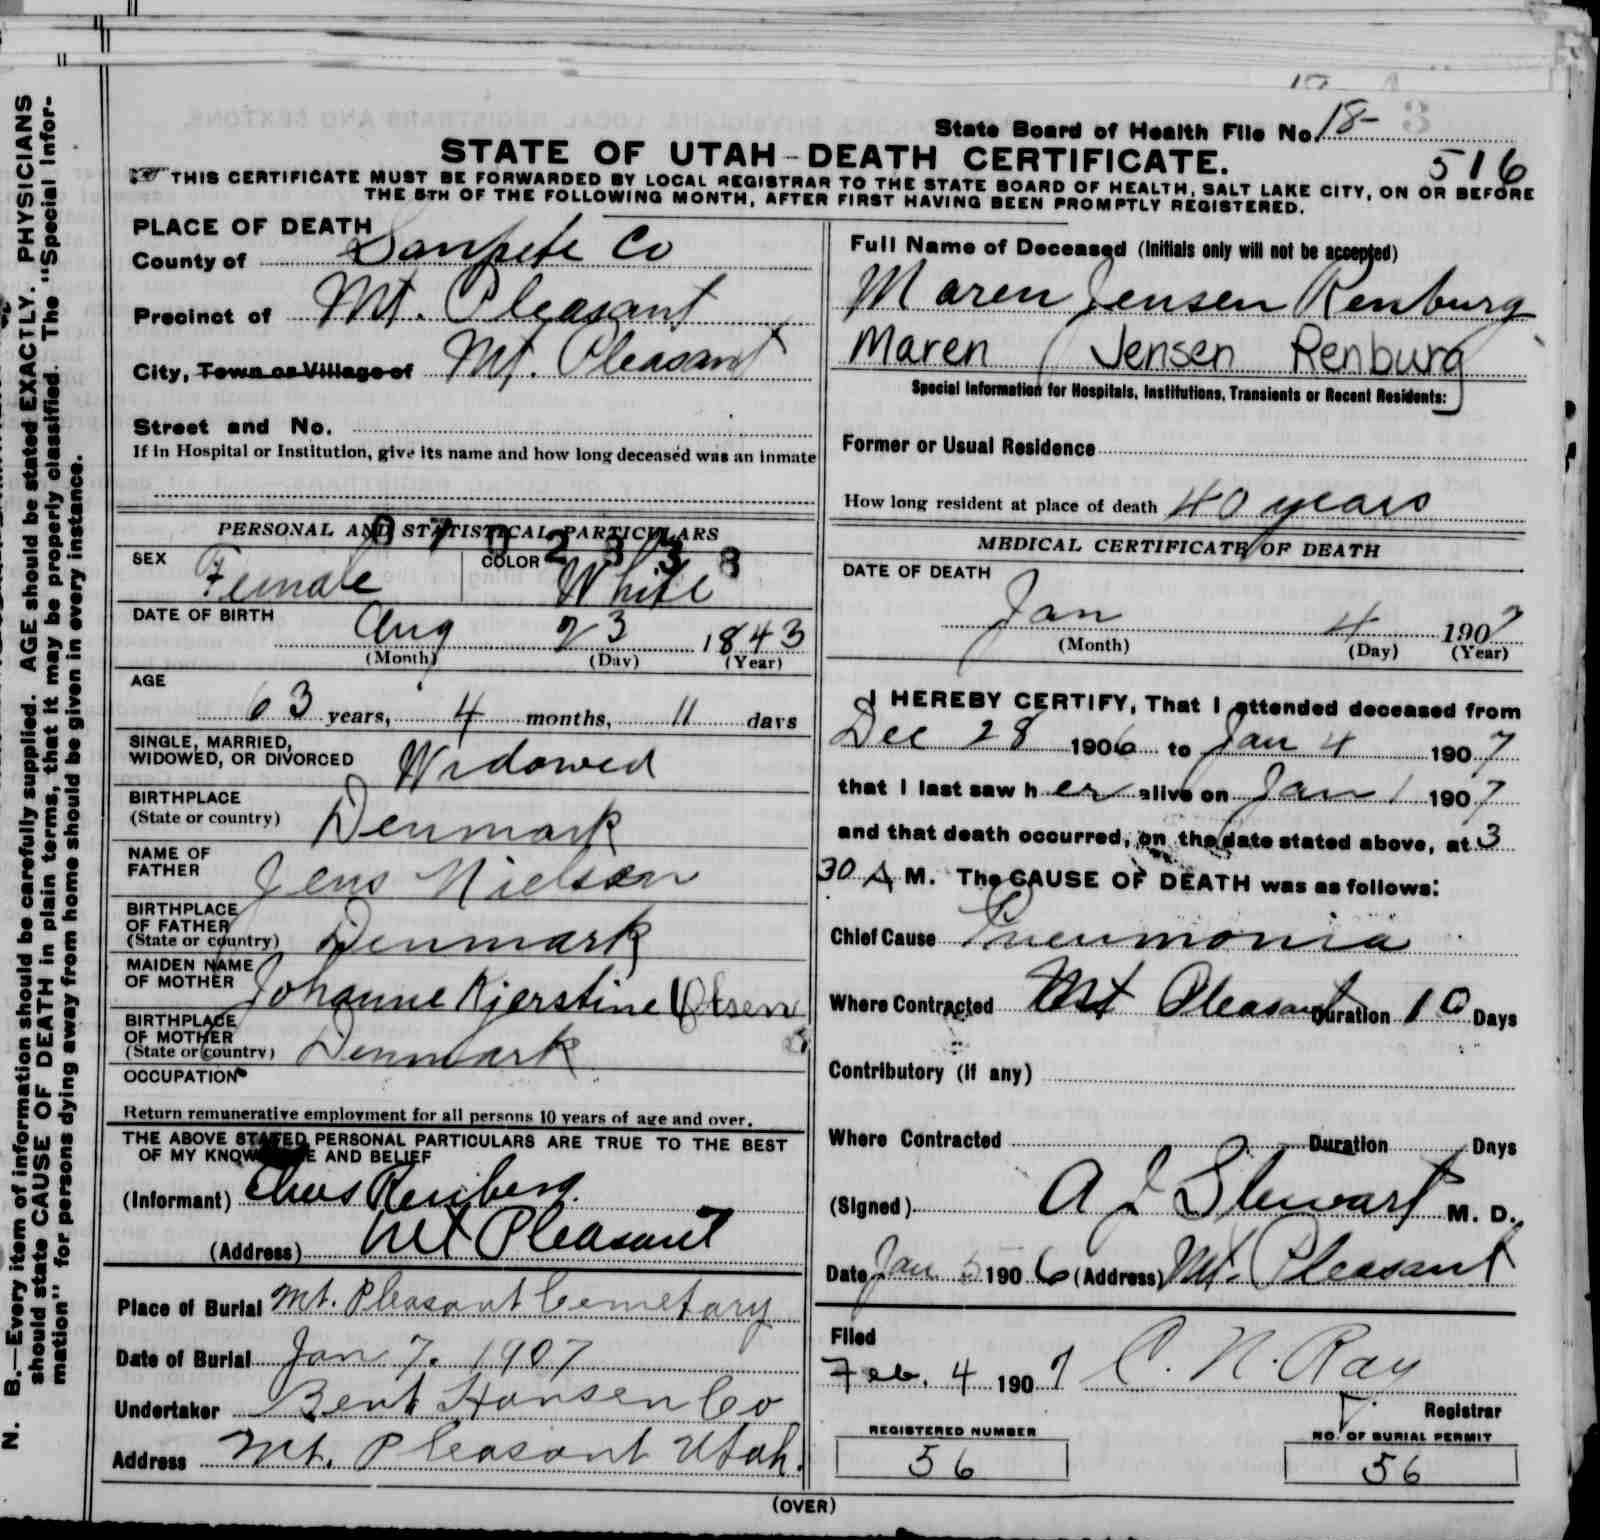 State Board of Health File No. 18-
516
STATE OF UTAH-DEATH CERTIFICATE.
THIS CERTIFICATE MUST BE FORWARDED BY LOCAL REGISTRAR TO THE STATE BOARD OF HEALTH, SALT LAKE CITY, ON OR BEFORE
THE 5TH OF THE FOLLOWING MONTH, AFTER FIRST HAVING BEEN PROMPTLY REGISTERED.
PLACE OF DEATH
County of Sanpete Co
Precinct of Mt. Pleasant
City, Town or Village of Mt. Pleasant
Street and No.
If in Hospital or Institution, give its name and how long deceased was an inmate
PERSONAL AND STATISTICAL PARTICULARS
SEX Female COLOR White
DATE OF BIRTH Aug 23 1843
(Month) (Day) (Year)
AGE
63 years, 4 months, 11 days
SINGLE, MARRIED,
WIDOWED, OR DIVORCED Widowed
BIRTHPLACE
(State or country) Denmark
NAME OF
FATHER Jens Nielsen
BIRTHPLACE
OF FATHER
(State or country) Denmark
MAIDEN NAME
OF MOTHER Johanne Kjerstine Olsen
BIRTHPLACE
OF MOTHER
(State or country) Denmark
OCCUPATION
Return remunerative employment for all persons 10 years of age and over.
THE ABOVE STATED PERSONAL PARTICULARS ARE TRUE TO THE BEST
OF MY KNOWLEDGE AND BELIEF
(Informant)
(Address) Mt Pleasant
Place of Burial Mt. Pleasant Cemetary
Date of Burial Jan 7. 1907
Undertaker Bent Hansen Co
Address Mt. Pleasant Utah.
Full Name of Deceased (Initials only will not be accepted)
Maren Jensen Renburg
Maren Jensen Renburg
Special Information for Hospitals, Institutions, Transients or Recent Residents:
Former or Usual Residence
How long resident at place of death 40 years
MEDICAL CERTIFICATE OF DEATH
DATE OF DEATH
Jan 4 1907
(Month) (Day) (Year)
I HEREBY CERTIFY, That I attended deceased from
Dec 28 1906 to Jan 4 1907
that I last saw her alive on Jan 1 1907
and that death occurred, on the date stated above, at 3
30 A M. The CAUSE OF DEATH was as follows:
Chief Cause Pneumonia
Where Contracted Mt Pleasant Duration 10 Days
Contributory (if any)
Where Contracted Duration Days
(Signed) A J Stewart M. D.
Date Jan 5 1906 (Address) Mt. Pleasant
Filed
Feb. 4 1907 C. N. Ray
Registrar
REGISTERED NUMBER NO. OF BURIAL PERMIT
56 56
(OVER)
N. B.—Every item of information should be carefully supplied. AGE should be stated EXACTLY. PHYSICIANS
should state CAUSE OF DEATH in plain terms, that it may be properly classified. The "Special Infor-
mation" for persons dying away from home should be given in every instance.